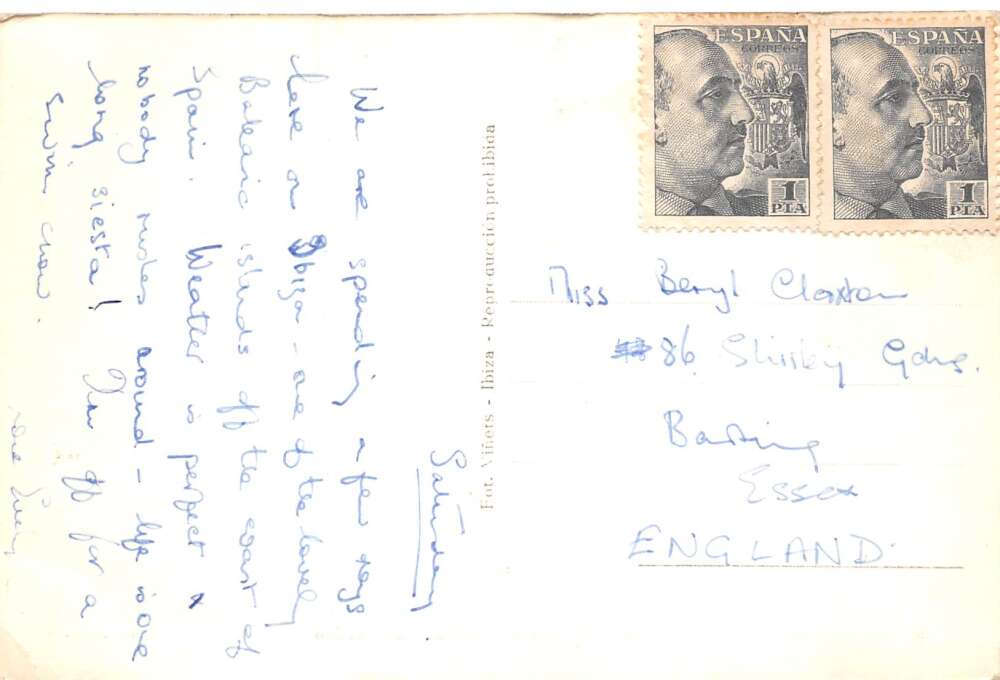 Saturday
We are spending a few days
here on Ibiza - one of the lovely
Balearic islands off the coast of
Spain. Weather is perfect &
nobody rushes around - life is one
long siesta! Am off for a
swim now.
Love
ESPAÑA
CORREOS
1
PTA
ESPAÑA
CORREOS
1
PTA
Fot. Viñets - Ibiza - Reproduccion prohibida
Miss Beryl Claxton
86 Gdns.
Barking
Essex
ENGLAND